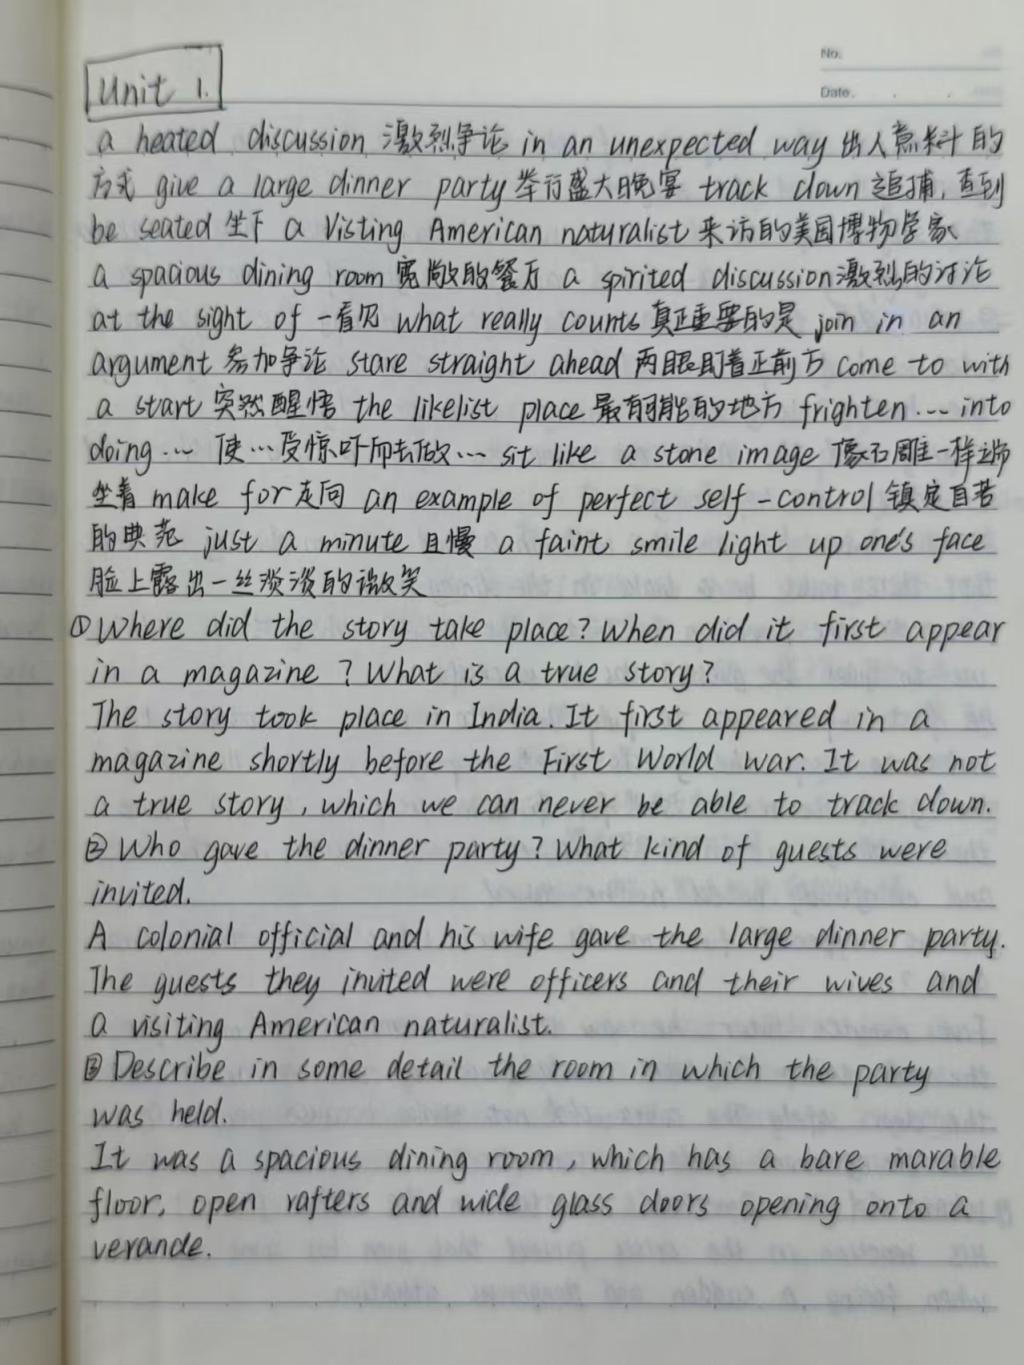 No.
Date.
Unit 1.
a heated discussion 激烈争论 in an unexpected way 出人意料的
方式 give a large dinner party 举行盛大晚宴 track down 追捕,查到
be seated 坐下 a Visting American naturalist 来访的美国博物学家
a spacious dining room 宽敞的餐厅 a spirited discussion 激烈的讨论
at the sight of 一看见 what really counts 真正重要的是 join in an
argument 参加争论 stare straight ahead 两眼盯着正前方 come to with
a start 突然醒悟 the likelist place 最有可能的地方 frighten … into
doing … 使…受惊吓而去做… sit like a stone image 像石雕一样端
坐着 make for 走向 an example of perfect self-control 镇定自若
的典范 just a minute 且慢 a faint smile light up one's face
脸上露出一丝淡淡的微笑
① Where did the story take place? When did it first appear
in a magazine? What is a true story?
The story took place in India. It first appeared in a
magazine shortly before the First World war. It was not
a true story, which we can never be able to track down.
② Who gave the dinner party? What kind of guests were
invited.
A colonial official and his wife gave the large dinner party.
The guests they invited were officers and their wives and
a visiting American naturalist.
③ Describe in some detail the room in which the party
was held.
It was a spacious dining room, which has a bare marable
floor, open rafters and wide glass doors opening onto a
verande.